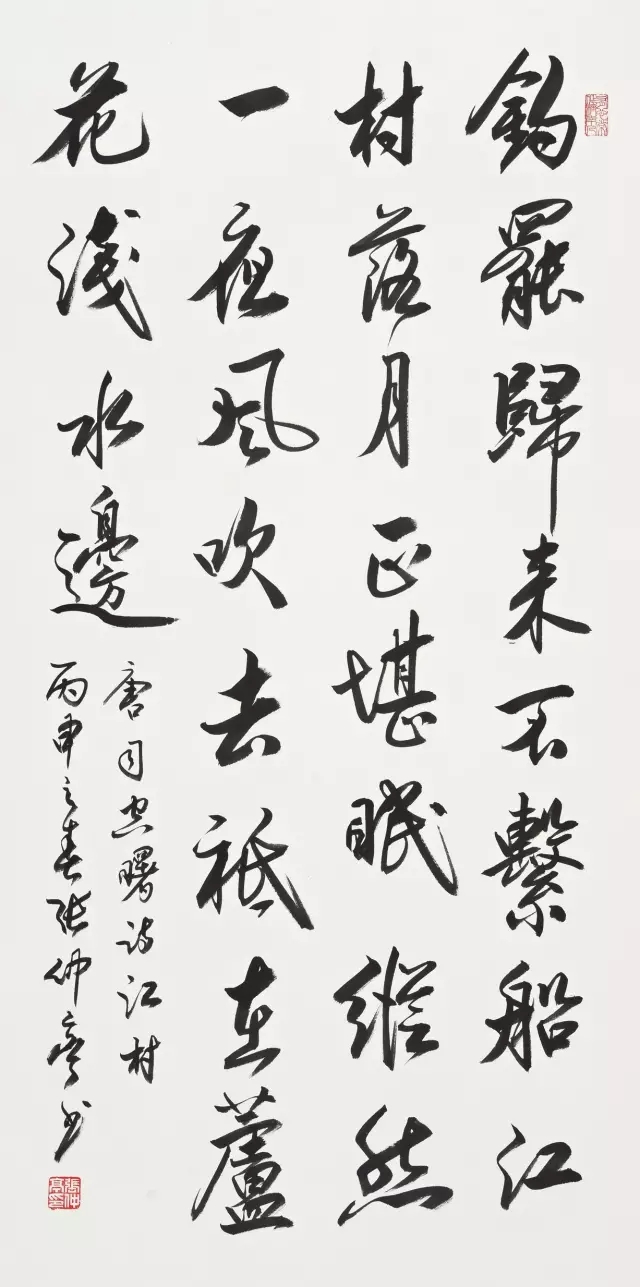 釣罷歸来不繫船江
村落月正堪眠縱然
一夜風吹去祗在蘆
花淺水邊
唐司空曙詩江村
丙申之春張仲亭书
張仲亭印